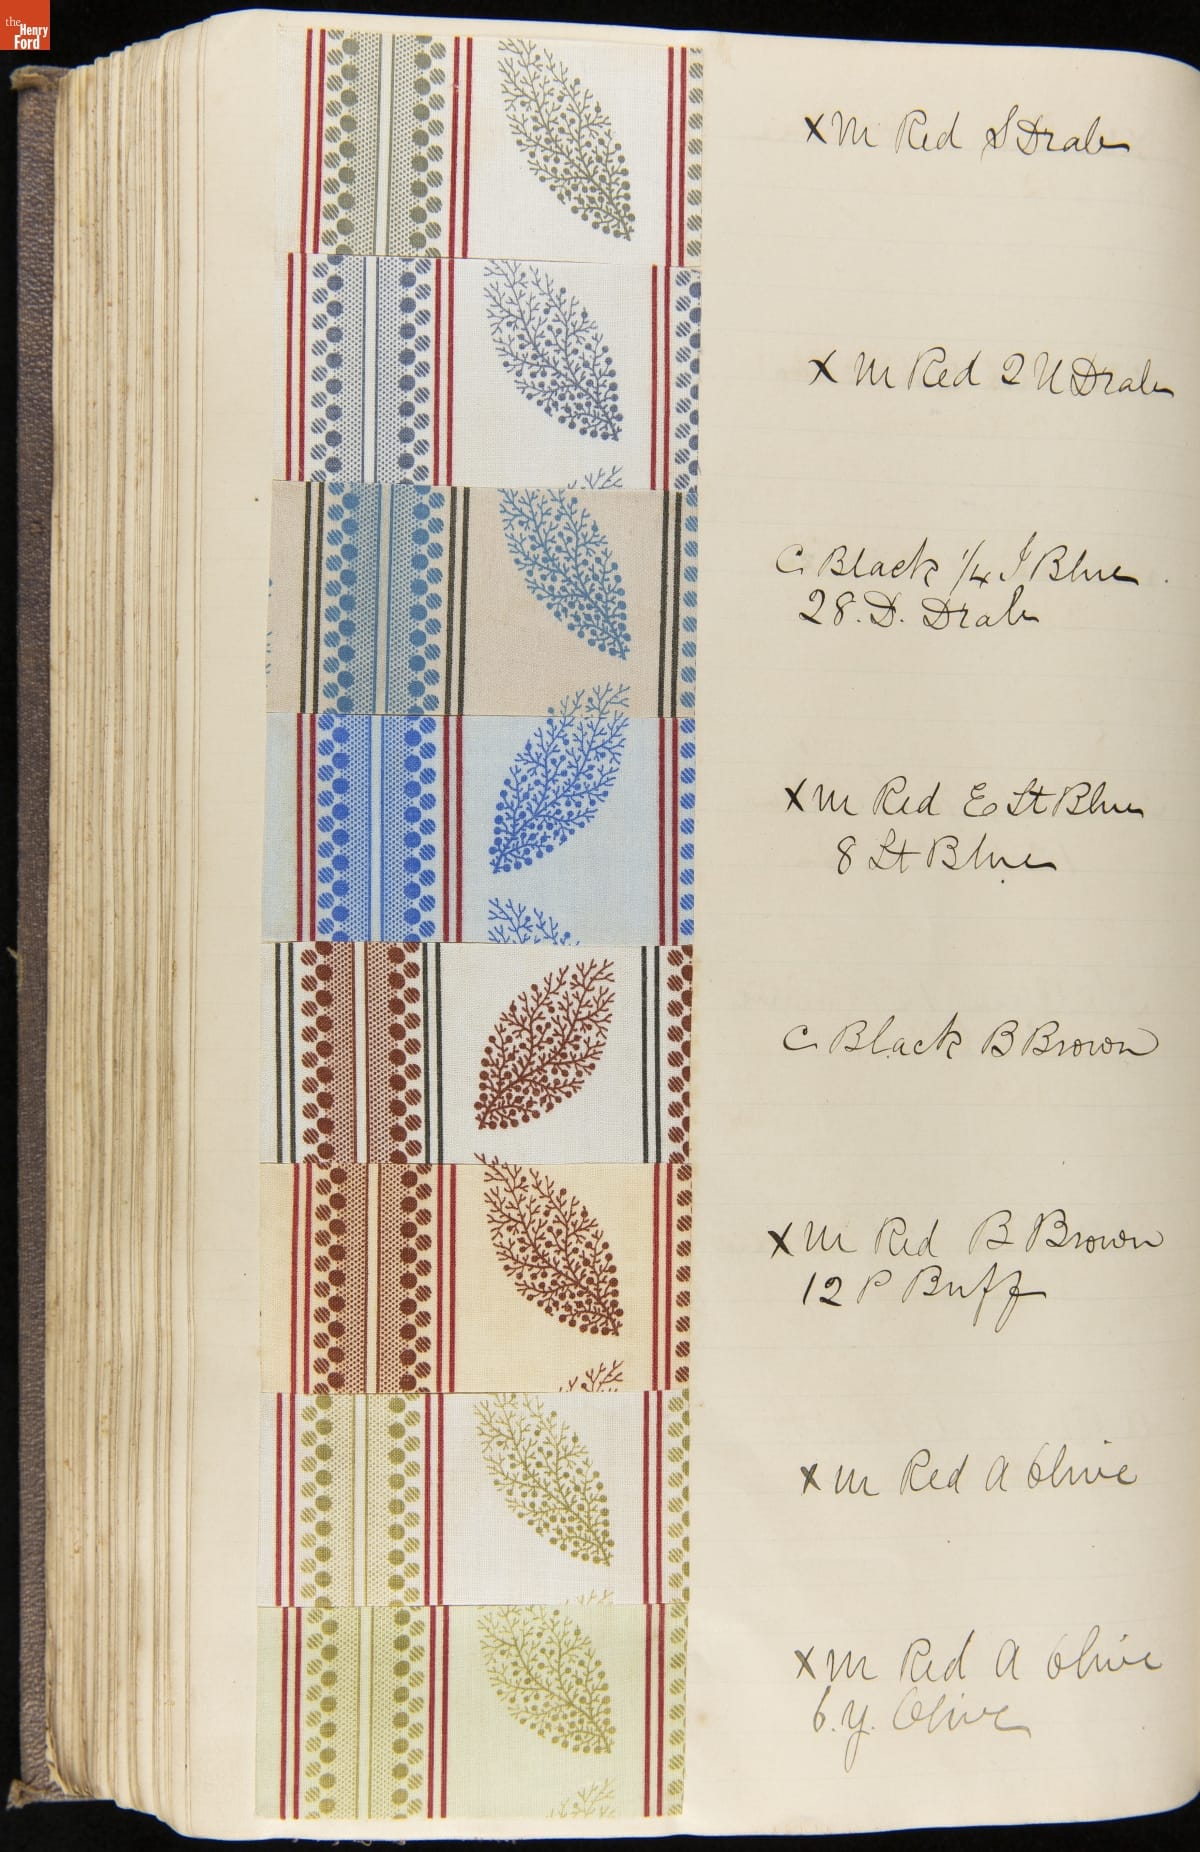 the
Henry
Ford
X M Red S Drab
X M Red 2 N Drab
C Black 1/4 J Blue
28. D. Drab
X M Red E Lt Blue
8 Lt Blue
C Black B Brown
X M Red B Brown
12 P Buff
X M Red A Olive
X M Red A Olive
6. y. Olive